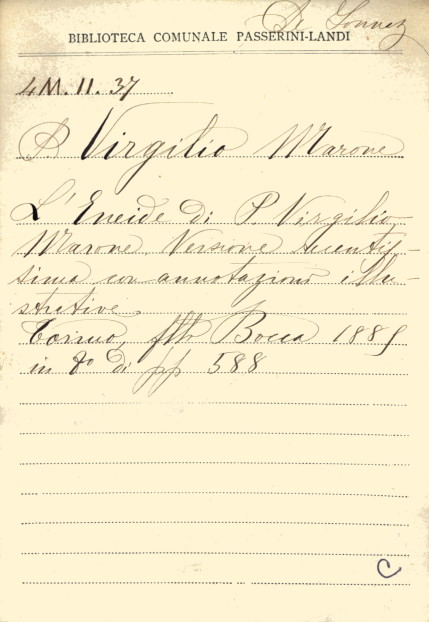 De Sonnaz
BIBLIOTECA COMUNALE PASSERINI-LANDI
4M.11.37
P. Virgilio Marone
L'Eneide di P Virgilio
Marone. Versione recentis-
sima con annotazioni illu-
strative.
Torino, flli Bocca 188
in 8º di pp 588
C